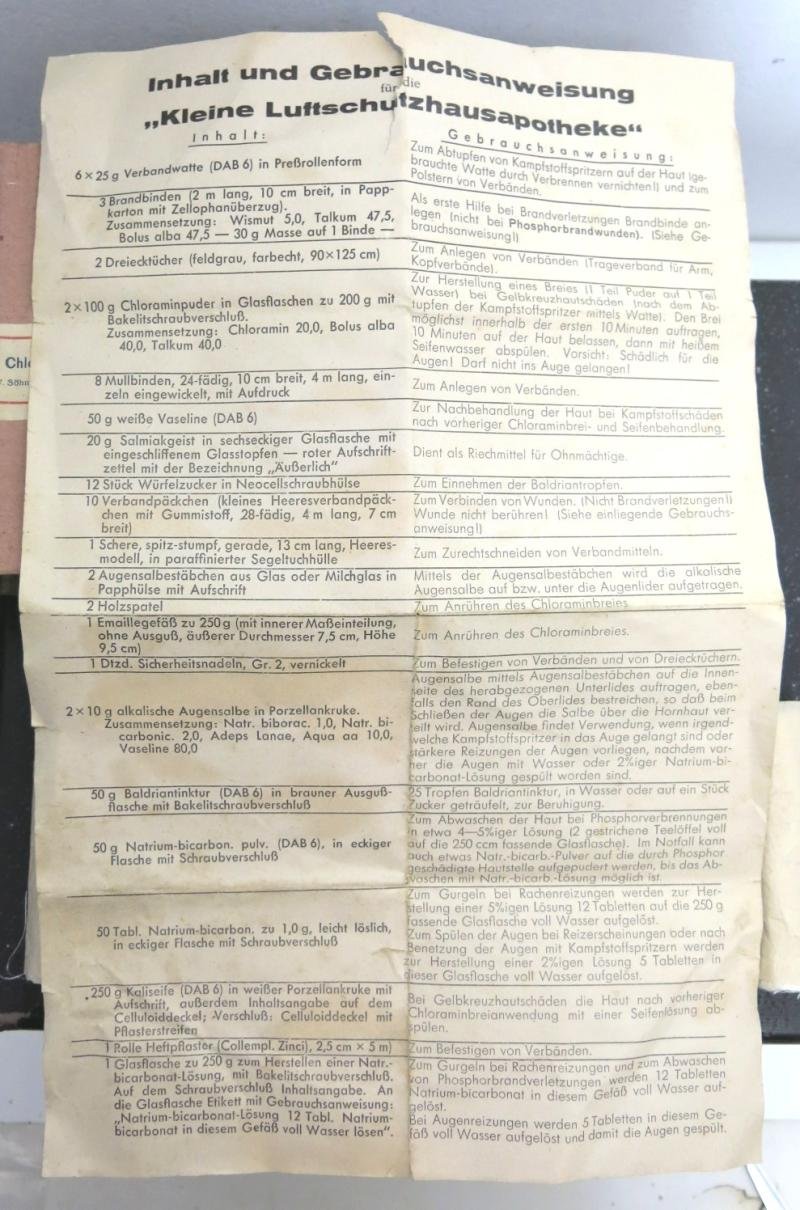 Inhalt und Gebrauchsanweisung
für die
„Kleine Luftschutzhausapotheke"
Inhalt:
6 × 25 g Verbandwatte (DAB 6) in Preßrollenform
3 Brandbinden (2 m lang, 10 cm breit, in Papp-
karton mit Zellophanüberzug).
Zusammensetzung: Wismut 5,0, Talkum 47,5,
Bolus alba 47,5 — 30 g Masse auf 1 Binde —
2 Dreiecktücher (feldgrau, farbecht, 90×125 cm)
2×100 g Chloraminpuder in Glasflaschen zu 200 g mit
Bakelitschraubverschluß.
Zusammensetzung: Chloramin 20,0, Bolus alba
40,0, Talkum 40,0
8 Mullbinden, 24-fädig, 10 cm breit, 4 m lang, ein-
zeln eingewickelt, mit Aufdruck
50 g weiße Vaseline (DAB 6)
20 g Salmiakgeist in sechseckiger Glasflasche mit
eingeschliffenem Glasstopfen — roter Aufschrift-
zettel mit der Bezeichnung „Äußerlich"
12 Stück Würfelzucker in Neocellschraubhülse
10 Verbandpäckchen (kleines Heeresverbandpäck-
chen mit Gummistoff, 28-fädig, 4 m lang, 7 cm
breit)
1 Schere, spitz-stumpf, gerade, 13 cm lang, Heeres-
modell, in paraffinierter Segeltuchhülle
2 Augensalbestäbchen aus Glas oder Milchglas in
Papphülse mit Aufschrift
2 Holzspatel
1 Emaillegefäß zu 250 g (mit innerer Maßeinteilung,
ohne Ausguß, äußerer Durchmesser 7,5 cm, Höhe
9,5 cm)
1 Dtzd. Sicherheitsnadeln, Gr. 2, vernickelt
2×10 g alkalische Augensalbe in Porzellankruke.
Zusammensetzung: Natr. biborac. 1,0, Natr. bi-
carbonic. 2,0, Adeps Lanae, Aqua aa 10,0,
Vaseline 80,0
50 g Baldriantinktur (DAB 6) in brauner Ausguß-
flasche mit Bakelitschraubverschluß
50 g Natrium-bicarbon. pulv. (DAB 6), in eckiger
Flasche mit Schraubverschluß
50 Tabl. Natrium-bicarbon. zu 1,0 g, leicht löslich,
in eckiger Flasche mit Schraubverschluß
250 g Kaliseife (DAB 6) in weißer Porzellankruke mit
Aufschrift, außerdem Inhaltsangabe auf dem
Celluloiddeckel; Verschluß: Celluloiddeckel mit
Pflasterstreifen
1 Rolle Heftpflaster (Collempl. Zinci), 2,5 cm × 5 m)
1 Glasflasche zu 250 g zum Herstellen einer Natr.-
bicarbonat-Lösung, mit Bakelitschraubverschluß.
Auf dem Schraubverschluß Inhaltsangabe. An
die Glasflasche Etikett mit Gebrauchsanweisung:
„Natrium-bicarbonat-Lösung 12 Tabl. Natrium-
bicarbonat in diesem Gefäß voll Wasser lösen".
Gebrauchsanweisung:
Zum Abtupfen von Kampfstoffspritzern auf der Haut (ge-
brauchte Watte durch Verbrennen vernichten!) und zum
Polstern von Verbänden.
Als erste Hilfe bei Brandverletzungen Brandbinde an-
legen (nicht bei Phosphorbrandwunden). (Siehe Ge-
brauchsanweisung!)
Zum Anlegen von Verbänden (Trageverband für Arm,
Kopfverbände).
Zur Herstellung eines Breies (1 Teil Puder auf 1 Teil
Wasser) bei Gelbkreuzhautschäden (nach dem Ab-
tupfen der Kampfstoffspritzer mittels Watte). Den Brei
möglichst innerhalb der ersten 10 Minuten auftragen,
10 Minuten auf der Haut belassen, dann mit heißem
Seifenwasser abspülen. Vorsicht: Schädlich für die
Augen! Darf nicht ins Auge gelangen!
Zum Anlegen von Verbänden.
Zur Nachbehandlung der Haut bei Kampfstoffschäden
nach vorheriger Chloraminbrei- und Seifenbehandlung.
Dient als Riechmittel für Ohnmächtige.
Zum Einnehmen der Baldriantropfen.
Zum Verbinden von Wunden. (Nicht Brandverletzungen!)
Wunde nicht berühren! (Siehe einliegende Gebrauchs-
anweisung!)
Zum Zurechtschneiden von Verbandmitteln.
Mittels der Augensalbestäbchen wird die alkalische
Augensalbe auf bzw. unter die Augenlider aufgetragen.
Zum Anrühren des Chloraminbreies
Zum Anrühren des Chloraminbreies.
Zum Befestigen von Verbänden und von Dreiecktüchern.
Augensalbe mittels Augensalbestäbchen auf die Innen-
seite des herabgezogenen Unterlides auftragen, eben-
falls den Rand des Oberlides bestreichen, so daß beim
Schließen der Augen die Salbe über die Hornhaut ver-
teilt wird. Augensalbe findet Verwendung, wenn irgend-
welche Kampfstoffspritzer in das Auge gelangt sind oder
stärkere Reizungen der Augen vorliegen, nachdem vor-
her die Augen mit Wasser oder 2%iger Natrium-bi-
carbonat-Lösung gespült worden sind.
25 Tropfen Baldriantinktur, in Wasser oder auf ein Stück
Zucker geträufelt, zur Beruhigung.
Zum Abwaschen der Haut bei Phosphorverbrennungen
in etwa 4—5%iger Lösung (2 gestrichene Teelöffel voll
auf die 250 ccm fassende Glasflasche). Im Notfall kann
auch etwas Natr.-bicarb.-Pulver auf die durch Phosphor
geschädigte Hautstelle aufgepudert werden, bis das Ab-
waschen mit Natr.-bicarb.-Lösung möglich ist.
Zum Gurgeln bei Rachenreizungen werden zur Her-
stellung einer 5%igen Lösung 12 Tabletten auf die 250 g
fassende Glasflasche voll Wasser aufgelöst.
Zum Spülen der Augen bei Reizerscheinungen oder nach
Benetzung der Augen mit Kampfstoffspritzern werden
zur Herstellung einer 2%igen Lösung 5 Tabletten in
dieser Glasflasche voll Wasser aufgelöst.
Bei Gelbkreuzhautschäden die Haut nach vorheriger
Chloraminbreianwendung mit einer Seifenlösung ab-
spülen.
Zum Befestigen von Verbänden.
Zum Gurgeln bei Rachenreizungen und zum Abwaschen
von Phosphorbrandverletzungen werden 12 Tabletten
Natrium-bicarbonat in diesem Gefäß voll Wasser auf-
gelöst.
Bei Augenreizungen werden 5 Tabletten in diesem Ge-
fäß voll Wasser aufgelöst und damit die Augen gespült.